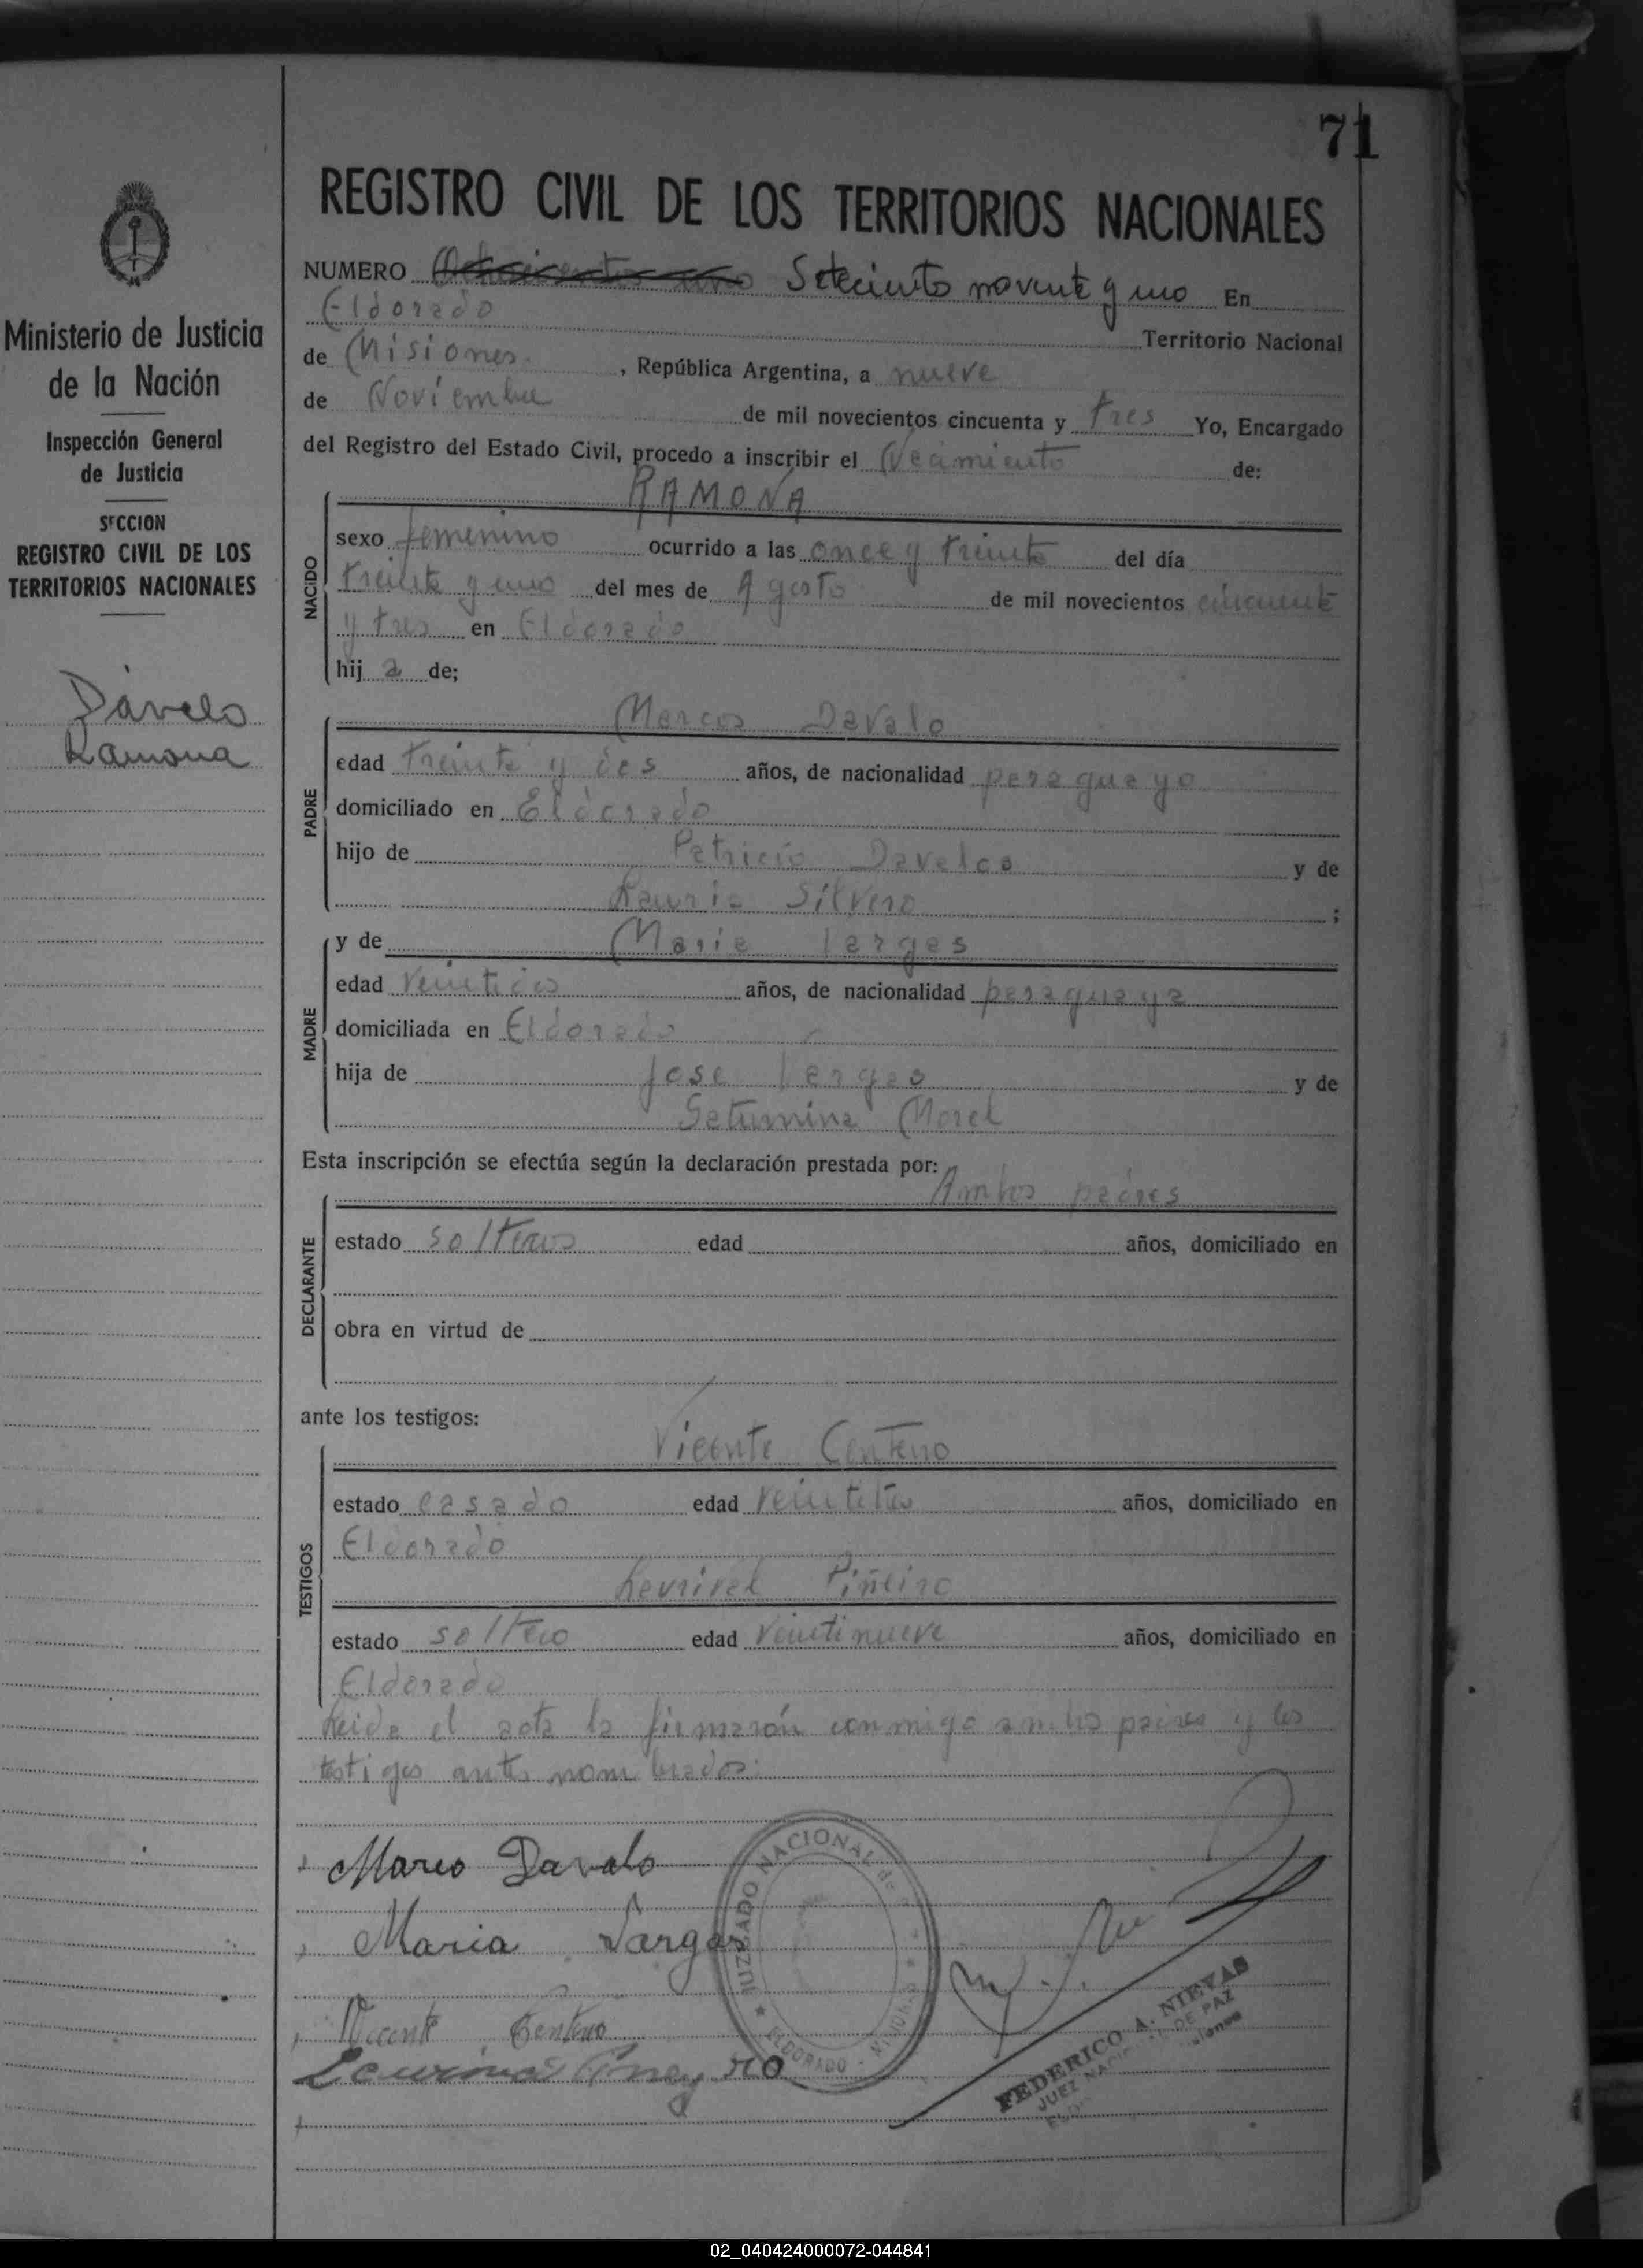 71
REGISTRO CIVIL DE LOS TERRITORIOS NACIONALES
NUMERO Ochocientos uno Setecientos noventa y uno En
Eldorado Territorio Nacional
de Misiones, República Argentina, a nueve
de Noviembre de mil novecientos cincuenta y tres Yo, Encargado
del Registro del Estado Civil, procedo a inscribir el Nacimiento de:
RAMONA
NACIDO
sexo femenino ocurrido a las once y treinta del día
treinta y uno del mes de Agosto de mil novecientos cincuenta
y tres en Eldorado
hij a de;
Marcos Davalo
PADRE
edad treinta y dos años, de nacionalidad paraguayo
domiciliado en Eldorado
hijo de Patricio Davalos y de
Silvero ;
y de Maria Vargas
MADRE
edad veintidos años, de nacionalidad paraguaya
domiciliada en Eldorado
hija de Jose Vargas y de
Saturnina Morel
Esta inscripción se efectúa según la declaración prestada por:
Ambos padres
DECLARANTE
estado solteros edad años, domiciliado en
obra en virtud de
ante los testigos:
Vicente Centeno
TESTIGOS
estado casado edad veintitres años, domiciliado en
Eldorado
Piñeiro
estado soltero edad veintinueve años, domiciliado en
Eldorado
Leida el acta la firmarón conmigo ambos padres y los
testigos antes nombrados.
Marco Davalo
Maria Vargas
Vicente Centeno
JUZGADO NACIONAL de
ELDORADO
FEDERICO A. NIEVAS
JUEZ DE PAZ
Ministerio de Justicia
de la Nación
Inspección General
de Justicia
SECCION
REGISTRO CIVIL DE LOS
TERRITORIOS NACIONALES
Dávalo
Ramona
02_040424000072-044841